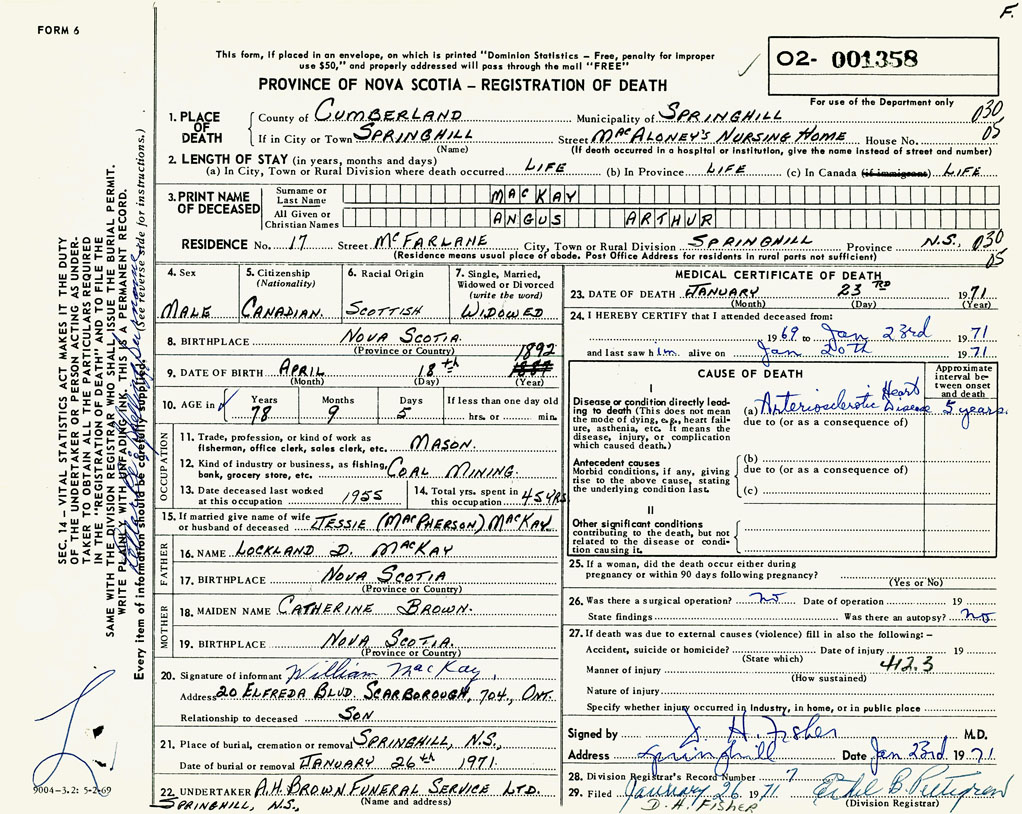 F.
FORM 6
This form, if placed in an envelope, on which is printed "Dominion Statistics – Free, penalty for improper
use $50," and properly addressed will pass through the mail "FREE"
02- 001358
PROVINCE OF NOVA SCOTIA – REGISTRATION OF DEATH
For use of the Department only
1. PLACE OF DEATH
County of CUMBERLAND Municipality of SPRINGHILL 030
If in City or Town SPRINGHILL Street MACALONEY'S NURSING HOME House No. 05
(Name) (If death occurred in a hospital or institution, give the name instead of street and number)
2. LENGTH OF STAY (in years, months and days)
(a) In City, Town or Rural Division where death occurred LIFE (b) In Province LIFE (c) In Canada (if immigrant) LIFE
3. PRINT NAME OF DECEASED
Surname or Last Name MACKAY
All Given or Christian Names ANGUS ARTHUR
RESIDENCE No. 17 Street MCFARLANE City, Town or Rural Division SPRINGHILL Province N.S., 030
(Residence means usual place of abode. Post Office Address for residents in rural parts not sufficient) 05
4. Sex
MALE
5. Citizenship
(Nationality)
CANADIAN.
6. Racial Origin
SCOTTISH
7. Single, Married,
Widowed or Divorced
(write the word)
WIDOWED
8. BIRTHPLACE NOVA SCOTIA
(Province or Country)
1892
9. DATE OF BIRTH APRIL 18th
(Month) (Day) (Year)
10. AGE in
Years Months Days If less than one day
78 9 5 hrs. or min.
OCCUPATION
11. Trade, profession, or kind of work as
fisherman, office clerk, sales clerk, etc. MASON.
12. Kind of industry or business, as fishing,
bank, grocery store, etc. COAL MINING.
13. Date deceased last worked
at this occupation 1955
14. Total yrs. spent in
this occupation 45 YRS
15. If married give name of wife
or husband of deceased JESSIE (MACPHERSON) MACKAY
FATHER
16. NAME LOCKLAND D. MACKAY
17. BIRTHPLACE NOVA SCOTIA
(Province or Country)
MOTHER
18. MAIDEN NAME CATHERINE BROWN.
19. BIRTHPLACE NOVA SCOTIA.
(Province or Country)
20. Signature of informant William MacKay,
Address 20 ELFREDA BLVD. SCARBOROUGH, 704, ONT.
Relationship to deceased SON
21. Place of burial, cremation or removal SPRINGHILL, N.S.,
Date of burial or removal JANUARY 26th 1971.
22. UNDERTAKER A.H. BROWN FUNERAL SERVICE LTD.
SPRINGHILL, N.S., (Name and address)
MEDICAL CERTIFICATE OF DEATH
23. DATE OF DEATH JANUARY 23RD 1971
(Month) (Day) (Year)
24. I HEREBY CERTIFY that I attended deceased from:
1969 to Jan 23rd 1971
and last saw him alive on Jan 20th 1971
CAUSE OF DEATH
Approximate
interval be-
tween onset
and death
I
Disease or condition directly lead-
ing to death (This does not mean
the mode of dying, e.g., heart fail-
ure, asthenia, etc. It means the
disease, injury, or complication
which caused death.)
(a) Arteriosclerotic Heart Disease 5 years.
due to (or as a consequence of)
Antecedent causes
Morbid conditions, if any, giving
rise to the above cause, stating
the underlying condition last.
(b)
due to (or as a consequence of)
(c)
II
Other significant conditions
contributing to the death, but not
related to the disease or condi-
tion causing it.
25. If a woman, did the death occur either during
pregnancy or within 90 days following pregnancy?
(Yes or No)
26. Was there a surgical operation? no Date of operation 19
State findings Was there an autopsy? no
27. If death was due to external causes (violence) fill in also the following: –
Accident, suicide or homicide? Date of injury 19
(State which) 412.3
Manner of injury
(How sustained)
Nature of injury
Specify whether injury occurred in industry, in home, or in public place
Signed by J. H. Fisher M.D.
Address Springhill Date Jan 23rd 1971
28. Division Registrar's Record Number 7
29. Filed January 26 1971
(Division Registrar)
D. H. FISHER
SEC. 14 – VITAL STATISTICS ACT MAKES IT THE DUTY
OF THE UNDERTAKER OR PERSON ACTING AS UNDER-
TAKER TO OBTAIN ALL THE PARTICULARS REQUIRED
IN THE "REGISTRATION OF DEATH" AND TO FILE THE
SAME WITH THE DIVISION REGISTRAR WHO SHALL ISSUE THE BURIAL PERMIT.
WRITE PLAINLY WITH UNFADING INK. THIS IS A PERMANENT RECORD.
Every item of information should be carefully supplied. (See reverse side for instructions.)
9004-3.2: 5-2-69